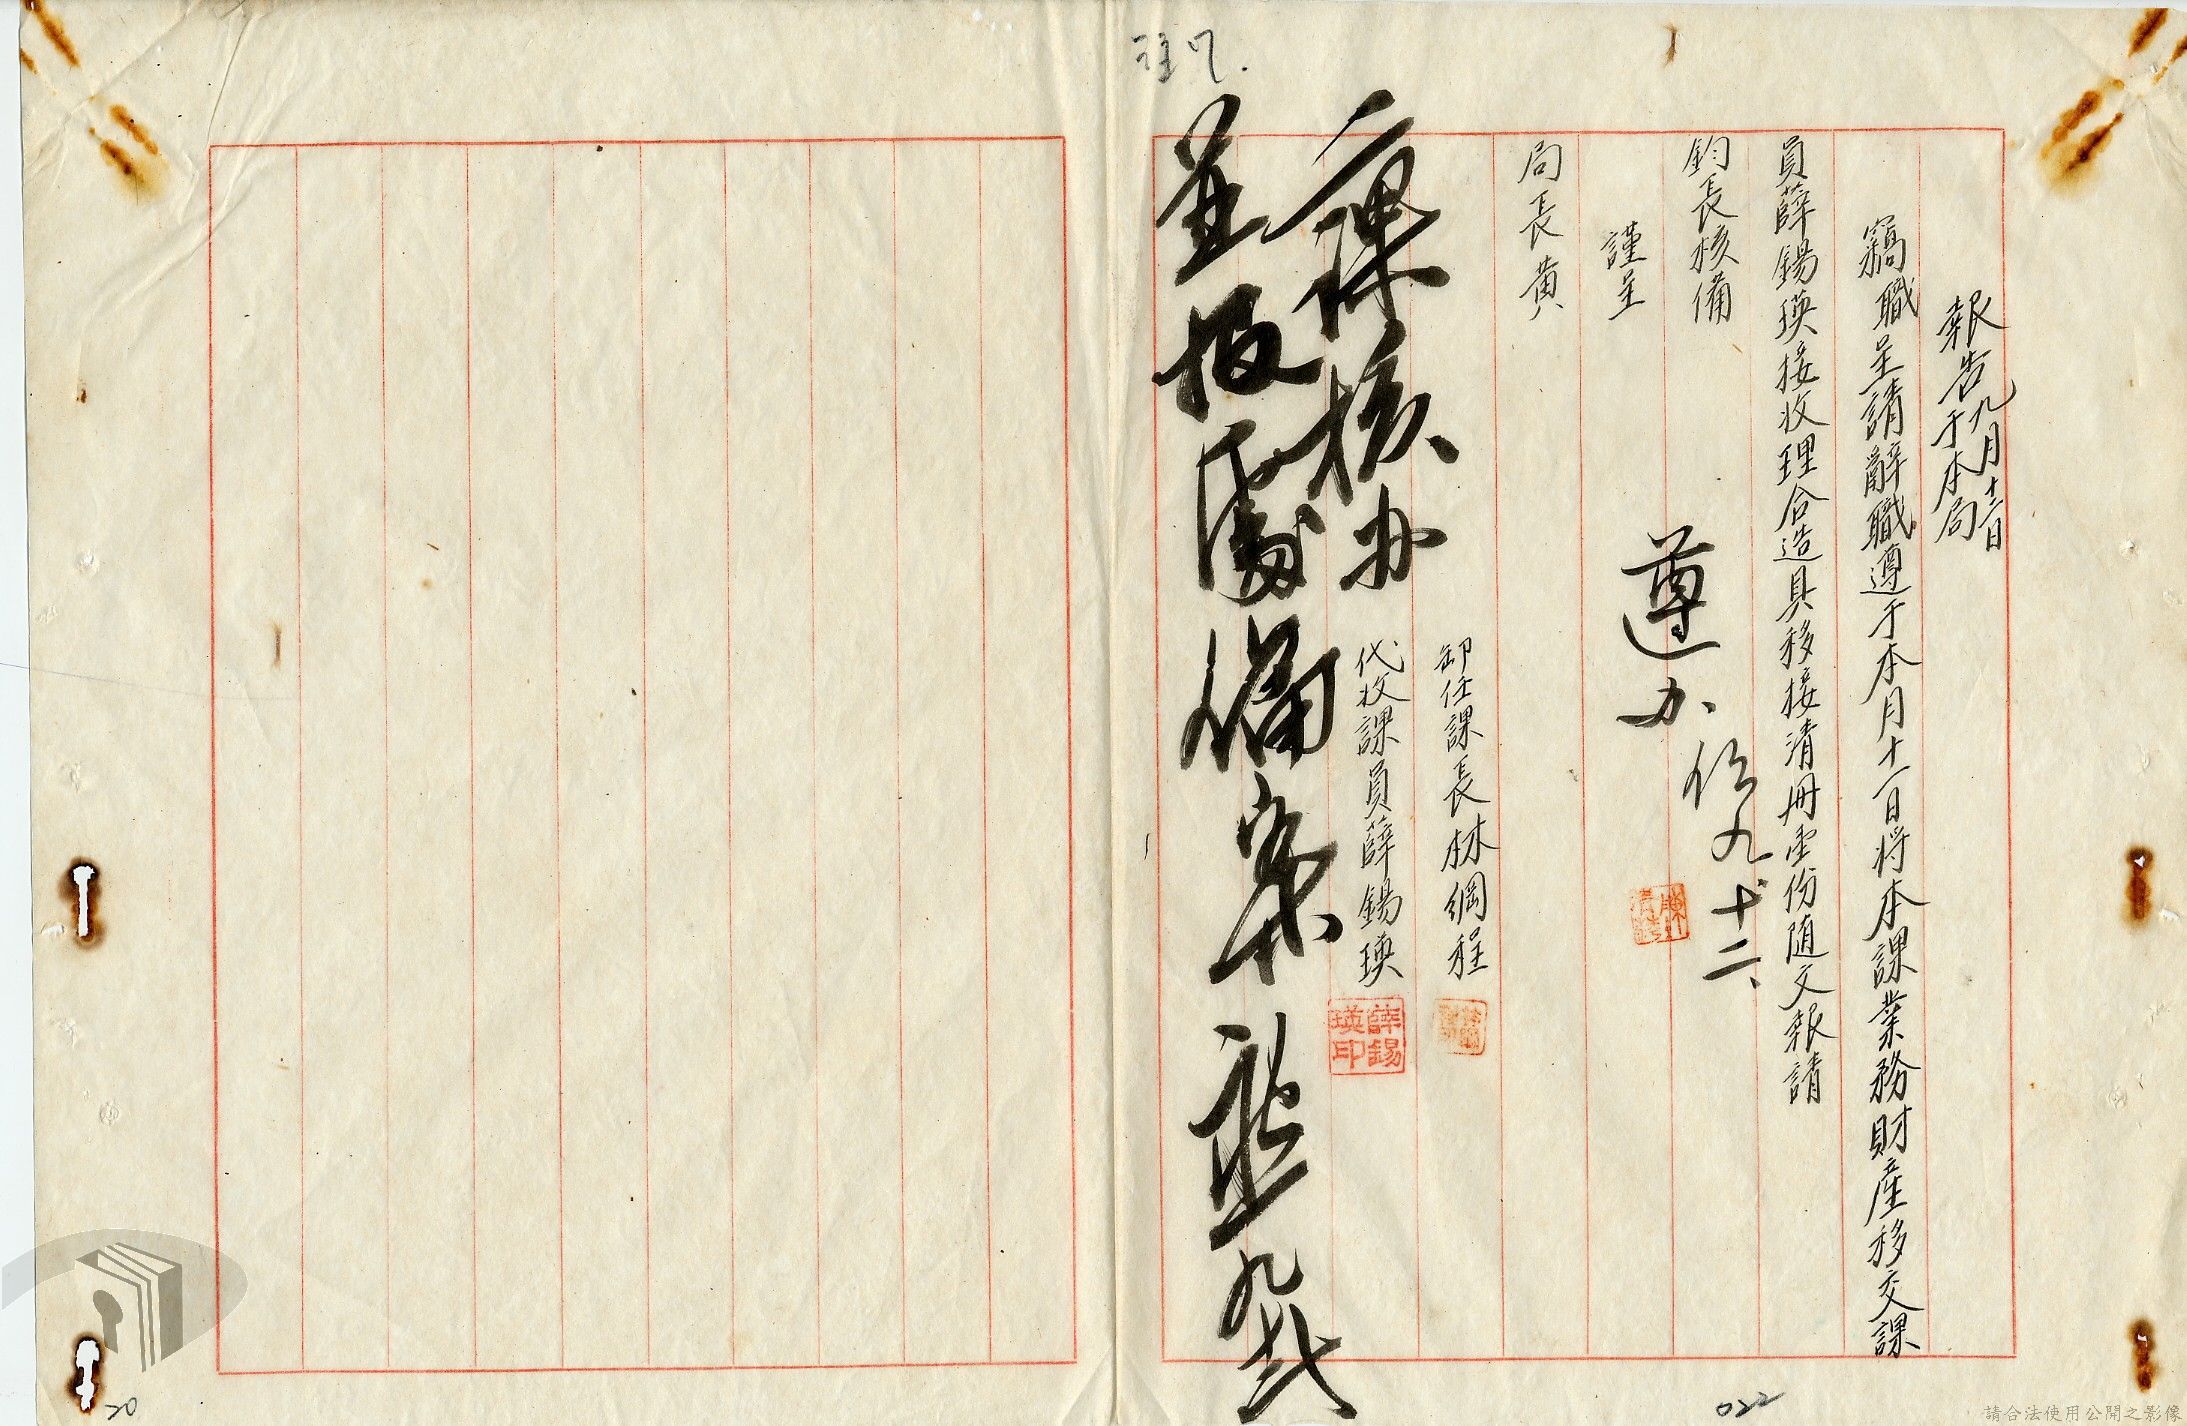 報告 九月十二日
于本局
竊職呈請辭職遵于本月十一日將本課業務財產移交課
員薛錫瑛接收理合造具移接清册壹份随文報請
鈞長核備
謹呈
局長黄
遵办 九、十二、
卸任課長林綱程
代收課員薛錫瑛
薛錫瑛印
核办
並报 備案
九
註7.
022
20
請合法使用公開之影像